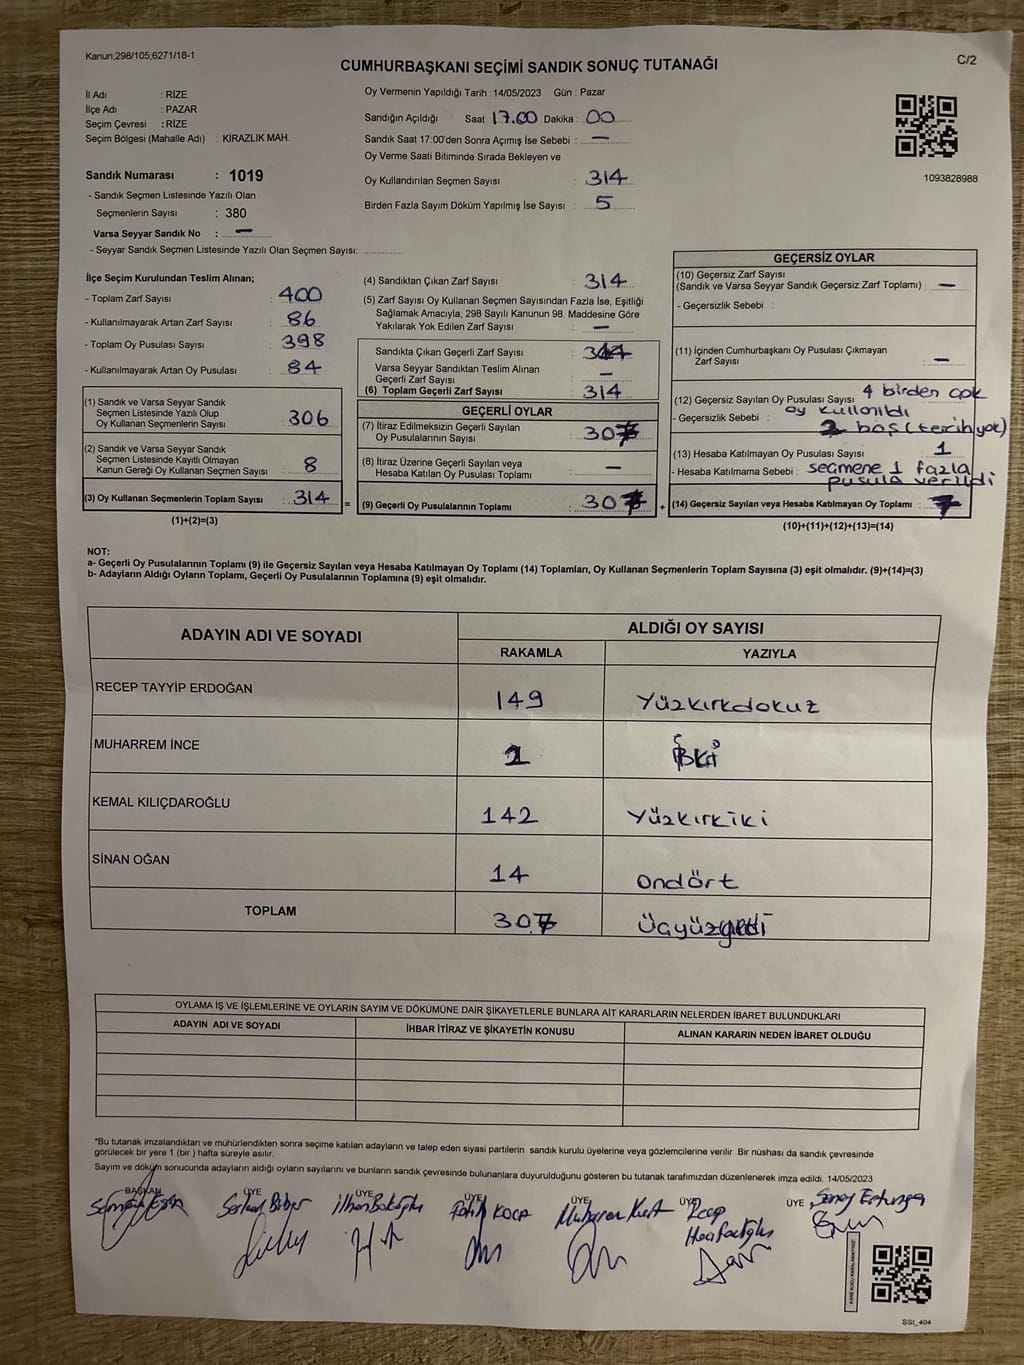 Kanun;298/105;6271/18-1
C/2
CUMHURBAŞKANI SEÇİMİ SANDIK SONUÇ TUTANAĞI
İl Adı : RİZE
İlçe Adı : PAZAR
Seçim Çevresi : RİZE
Seçim Bölgesi (Mahalle Adı) : KİRAZLIK MAH.
Sandık Numarası : 1019
- Sandık Seçmen Listesinde Yazılı Olan
Seçmenlerin Sayısı : 380
Varsa Seyyar Sandık No : —
- Seyyar Sandık Seçmen Listesinde Yazılı Olan Seçmen Sayısı:
Oy Vermenin Yapıldığı Tarih : 14/05/2023 Gün : Pazar
Sandığın Açıldığı Saat 17.00 Dakika : 00
Sandık Saat 17:00'den Sonra Açımış İse Sebebi : —
Oy Verme Saati Bitiminde Sırada Bekleyen ve
Oy Kullandırılan Seçmen Sayısı : 314
Birden Fazla Sayım Döküm Yapılmış İse Sayısı : 5
1093828988
İlçe Seçim Kurulundan Teslim Alınan;
- Toplam Zarf Sayısı : 400
- Kullanılmayarak Artan Zarf Sayısı : 86
- Toplam Oy Pusulası Sayısı : 398
- Kullanılmayarak Artan Oy Pusulası : 84
(1) Sandık ve Varsa Seyyar Sandık
Seçmen Listesinde Yazılı Olup
Oy Kullanan Seçmenlerin Sayısı : 306
(2) Sandık ve Varsa Seyyar Sandık
Seçmen Listesinde Kayıtlı Olmayan
Kanun Gereği Oy Kullanan Seçmen Sayısı : 8
(3) Oy Kullanan Seçmenlerin Toplam Sayısı : 314 =
(1)+(2)=(3)
(4) Sandıktan Çıkan Zarf Sayısı : 314
(5) Zarf Sayısı Oy Kullanan Seçmen Sayısından Fazla İse, Eşitliği
Sağlamak Amacıyla; 298 Sayılı Kanunun 98. Maddesine Göre
Yakılarak Yok Edilen Zarf Sayısı : —
Sandıkta Çıkan Geçerli Zarf Sayısı : 314
Varsa Seyyar Sandıktan Teslim Alınan
Geçerli Zarf Sayısı : —
(6) Toplam Geçerli Zarf Sayısı : 314
GEÇERLİ OYLAR
(7) İtiraz Edilmeksizin Geçerli Sayılan
Oy Pusulalarının Sayısı : 307
(8) İtiraz Üzerine Geçerli Sayılan veya
Hesaba Katılan Oy Pusulası Toplamı : —
(9) Geçerli Oy Pusulalarının Toplamı : 307 +
GEÇERSİZ OYLAR
(10) Geçersiz Zarf Sayısı
(Sandık ve Varsa Seyyar Sandık Geçersiz Zarf Toplamı) : —
- Geçersizlik Sebebi :
(11) İçinden Cumhurbaşkanı Oy Pusulası Çıkmayan
Zarf Sayısı : —
(12) Geçersiz Sayılan Oy Pusulası Sayısı 4 birden çok
- Geçersizlik Sebebi : oy kullanıldı
2 boş (tercih yok)
(13) Hesaba Katılmayan Oy Pusulası Sayısı : 1
- Hesaba Katılmama Sebebi : seçmene 1 fazla
pusula verildi
(14) Geçersiz Sayılan veya Hesaba Katılmayan Oy Toplamı : 7
(10)+(11)+(12)+(13)=(14)
NOT:
a- Geçerli Oy Pusulalarının Toplamı (9) ile Geçersiz Sayılan veya Hesaba Katılmayan Oy Toplamı (14) Toplamları, Oy Kullanan Seçmenlerin Toplam Sayısına (3) eşit olmalıdır. (9)+(14)=(3)
b- Adayların Aldığı Oyların Toplamı, Geçerli Oy Pusulalarının Toplamına (9) eşit olmalıdır.
ADAYIN ADI VE SOYADI
ALDIĞI OY SAYISI
RAKAMLA YAZIYLA
RECEP TAYYİP ERDOĞAN 149 Yüzkırkdokuz
MUHARREM İNCE 2 İki
KEMAL KILIÇDAROĞLU 142 Yüzkırkiki
SİNAN OĞAN 14 Ondört
TOPLAM 307 Üçyüzyedi
OYLAMA İŞ VE İŞLEMLERİNE VE OYLARIN SAYIM VE DÖKÜMÜNE DAİR ŞİKAYETLERLE BUNLARA AİT KARARLARIN NELERDEN İBARET BULUNDUKLARI
ADAYIN ADI VE SOYADI İHBAR İTİRAZ VE ŞİKAYETİN KONUSU ALINAN KARARIN NEDEN İBARET OLDUĞU
*Bu tutanak imzalandıktan ve mühürlendikten sonra seçime katılan adayların ve talep eden siyasi partilerin sandık kurulu üyelerine veya gözlemcilerine verilir. Bir nüshası da sandık çevresinde
görülecek bir yere 1 (bir ) hafta süreyle asılır.
Sayım ve döküm sonucunda adayların aldığı oyların sayılarını ve bunların sandık çevresinde bulunanlara duyurulduğunu gösteren bu tutanak tarafımızdan düzenlenerek imza edildi. 14/05/2023
BAŞKAN ÜYE ÜYE ÜYE ÜYE ÜYE ÜYE
Serkan Biber İlhan Fatih KOCA Muharrem Kurt Recep
SSI_404